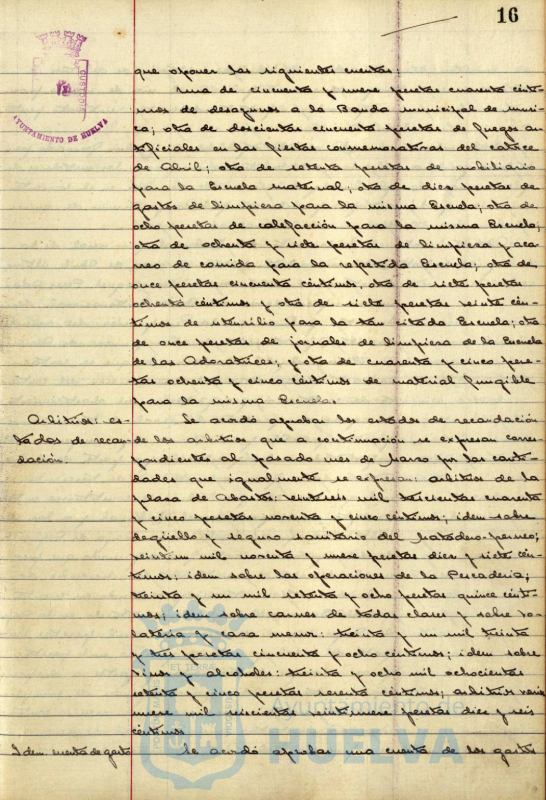 16
CUSTODIA
AYUNTAMIENTO DE HUELVA
que oponer las siguientes cuentas:
Una de cincuenta y nueve pesetas cuarenta cénti-
mos de desayunos a la Banda municipal de musi-
ca; otra de doscientas cincuenta pesetas de fuegos ar-
tificiales en las fiestas conmemorativas del catorce
de Abril; otra de setenta pesetas de mobiliario
para la Escuela maternal; otra de diez pesetas de
gastos de limpieza para la misma Escuela; otra de
ocho pesetas de calefacción para la misma Escuela;
otra de ochenta y siete pesetas de limpieza y aca-
rreo de comida para la repetida Escuela; otra de
once pesetas cincuenta céntimos, otra de siete pesetas
ochenta céntimos y otra de siete pesetas veinte cén-
timos de utensilio para la tan citada Escuela; otra
de once pesetas de jornales de limpieza de la Escuela
de las Adoratrices; y otra de cuarenta y cinco pese-
tas ochenta y cinco céntimos de material fungible
para la misma Escuela.
Arbitrios: es-
tados de recau-
dación.
Se acordó aprobar los estados de recaudación
de los arbitrios que a continuación se expresan corres-
pondientes al pasado mes de Marzo por las canti-
dades que igualmente se expresan: arbitrios de la
plaza de Abastos: veintiseis mil trescientas cuarenta
y cinco pesetas noventa y cinco céntimos; idem sobre
degüello y seguro sanitario del Matadero-
veintiun mil noventa y nueve pesetas diez y siete cén-
timos: idem sobre las operaciones de la Pescaderia;
treinta y un mil setenta y ocho pesetas quince cénti-
mos; idem sobre carnes de todas clases y sobre vo-
lateria y caza menor: treinta y un mil treinta
y tres pesetas cincuenta y ocho céntimos; idem sobre
vinos y alcoholes: treinta y ocho mil ochocientas
setenta y cinco pesetas sesenta céntimos; arbitrios varios
nueve mil seiscientas veintinueve pesetas diez y seis
céntimos
Idem cuenta de gastos
Se acordó aprobar una cuenta de los gastos
Ayuntamiento de
HUELVA